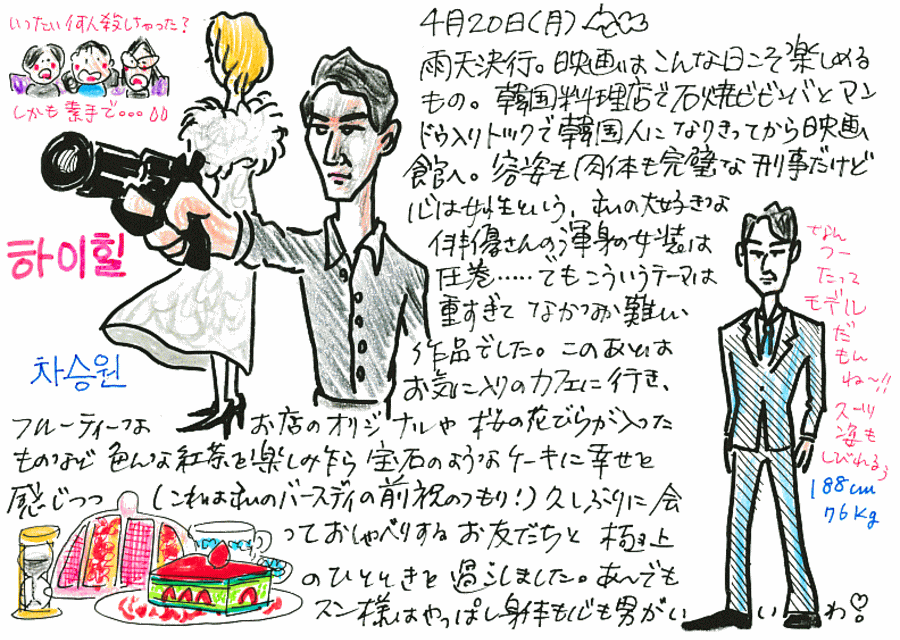 いったい何人殺しちゃった？
しかも素手で・・・
4月20日(月)
雨天決行。映画はこんな日こそ楽しめる
もの。韓国料理店で石焼ビビンバとマン
ドゥ入りトックで韓国人になりきってから映画
館へ。容姿も肉体も完璧な刑事だけど
心は女性という、私の大好きな
俳優さんの渾身の女装は
圧巻……でもこういうテーマは
重すぎてなかなか難しい
作品でした。このあとは
お気に入りのカフェに行き、
フルーティーなお店のオリジナルや桜の花びらが入った
ものなど色んな紅茶を楽しみ乍ら宝石のようなケーキに幸せを
感じつつ(これは私のバースディの前祝のつもり！)久しぶりに会
っておしゃべりするお友だちと極上
のひとときを過ごしました。あ〜でも
スン様はやっぱし身体も心も男がいいわ♡
하이힐
차승원
なん
つー
たって
モデル
だ
もん
ね〜!!
スーツ
姿も
しびれるぅ
188cm
76kg